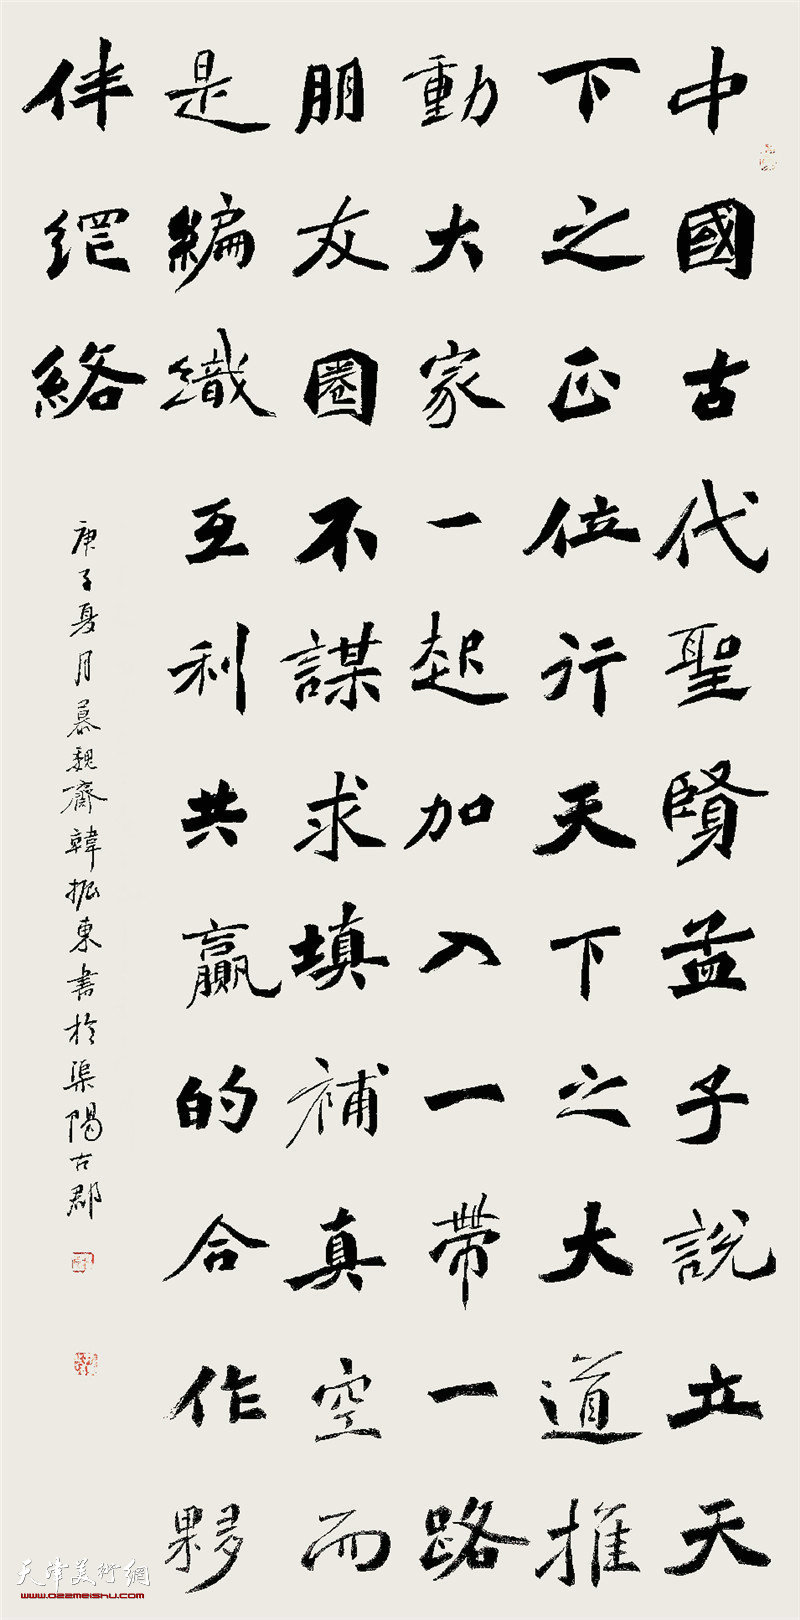 中國古代聖賢孟子說立天
下之正位行天下之大道推
動大家一起加入一带一路
朋友圈不謀求填補真空而
是編織互利共贏的合作夥
伴网絡
庚子夏月慕魏齋韓振東書於渠陽古郡
天津美術網
www.022meishu.com